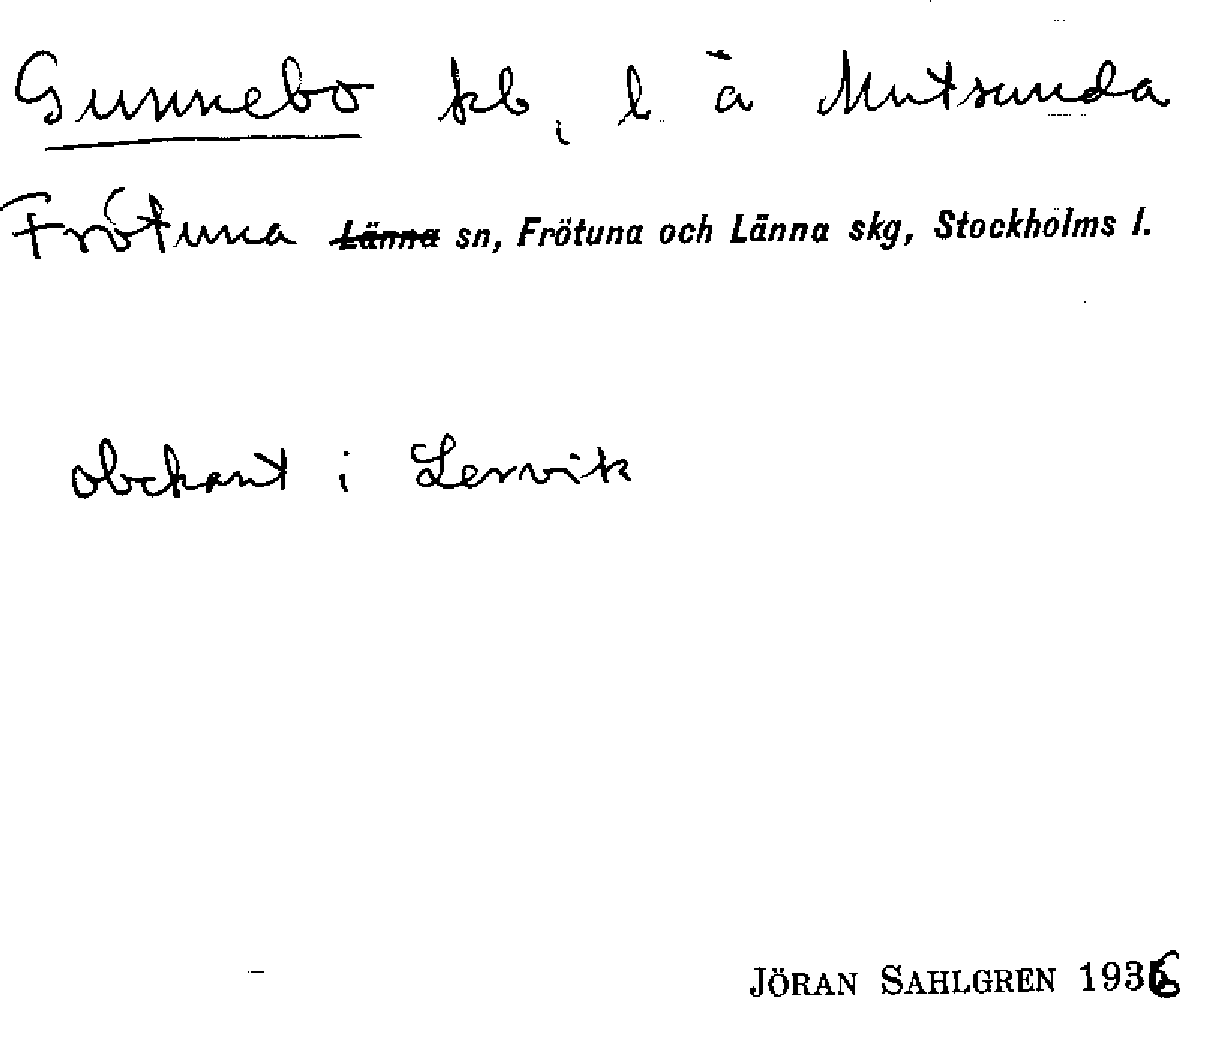 Gunnebo kb, l. å Mutsunda
Frötuna Länna sn, Frötuna och Länna skg, Stockholms l.
obekant i Lervik
JÖRAN SAHLGREN 1936